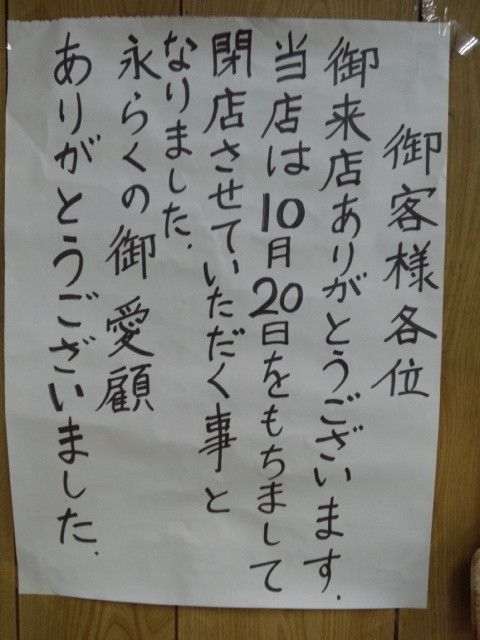 御客様各位
御来店ありがとうございます.
当店は10月20日をもちまして
閉店させていただく事と
なりました.
永らくの御愛顧
ありがとうございました.